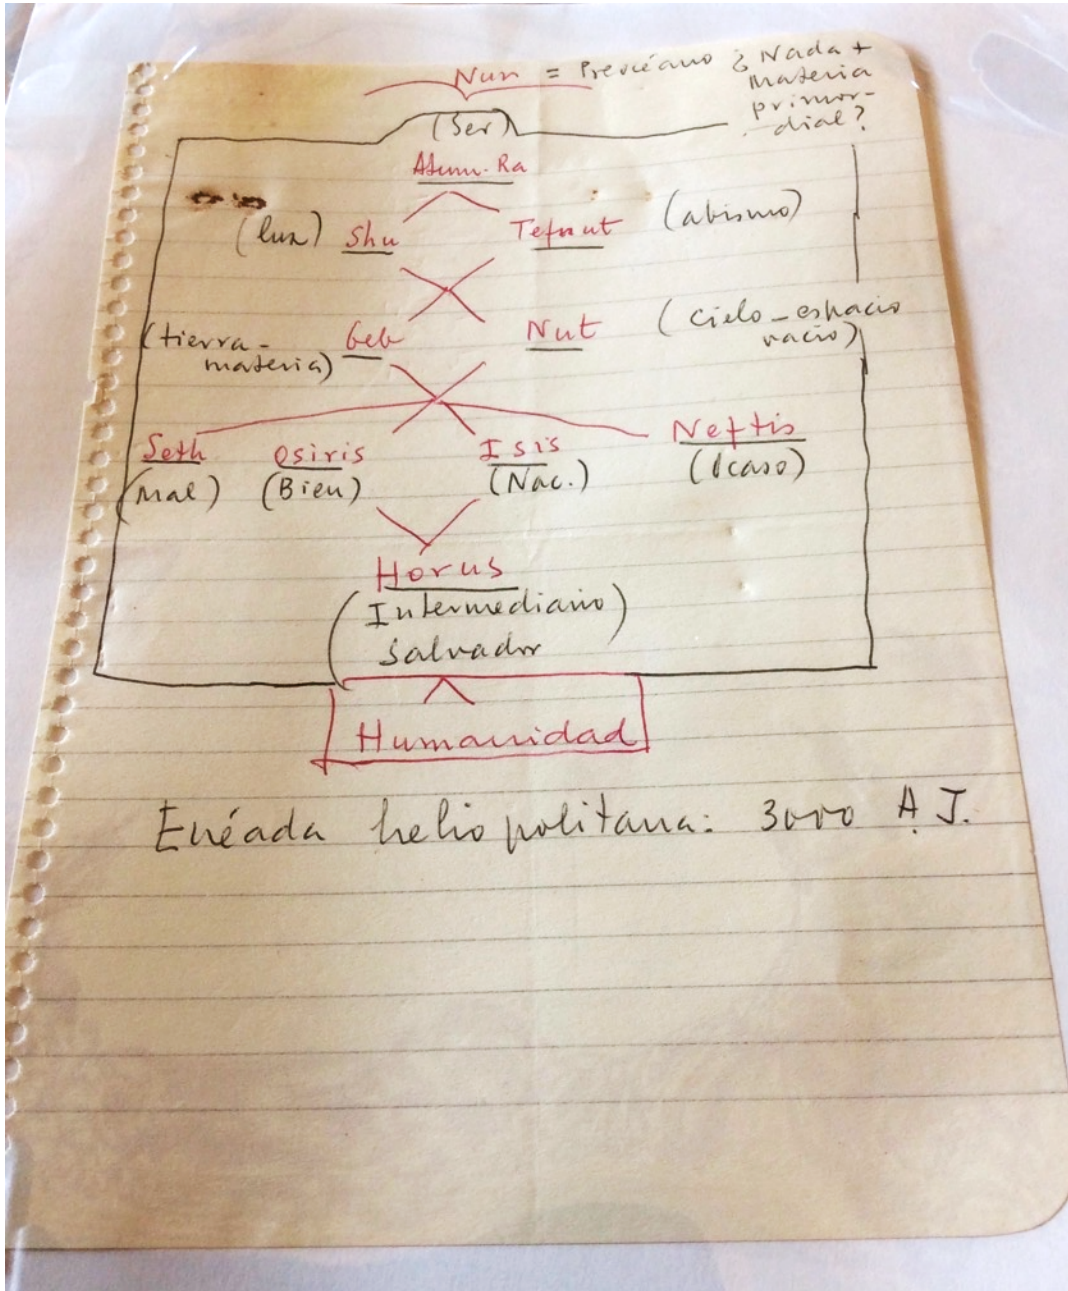 Nun = Preocéano ¿Nada +
materia
primor-
dial?
(Ser)
Atum-Ra
(luz) Shu Tefnut (abismo)
(tierra- Geb Nut (cielo-espacio
materia) vacío)
Seth Osiris Isis Neftis
(Mal) (Bien) (Nac.) (Ocaso)
Horus
(Intermediario)
Salvador
Humanidad
Enéada heliopolitana: 3000 A.J.